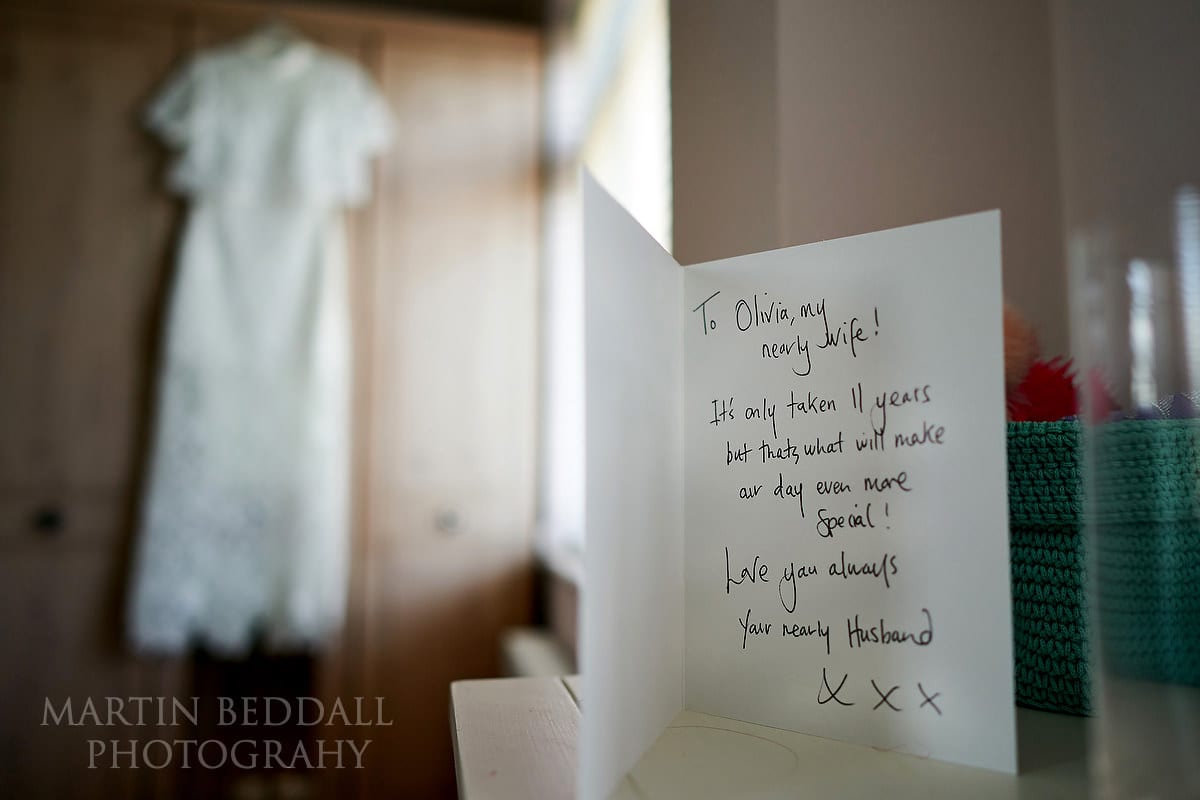 To Olivia, my
nearly wife!
It's only taken 11 years
but thats, what will make
our day even more
Special!
Love you always
Your nearly Husband
x x x
MARTIN BEDDALL
PHOTOGRAHY